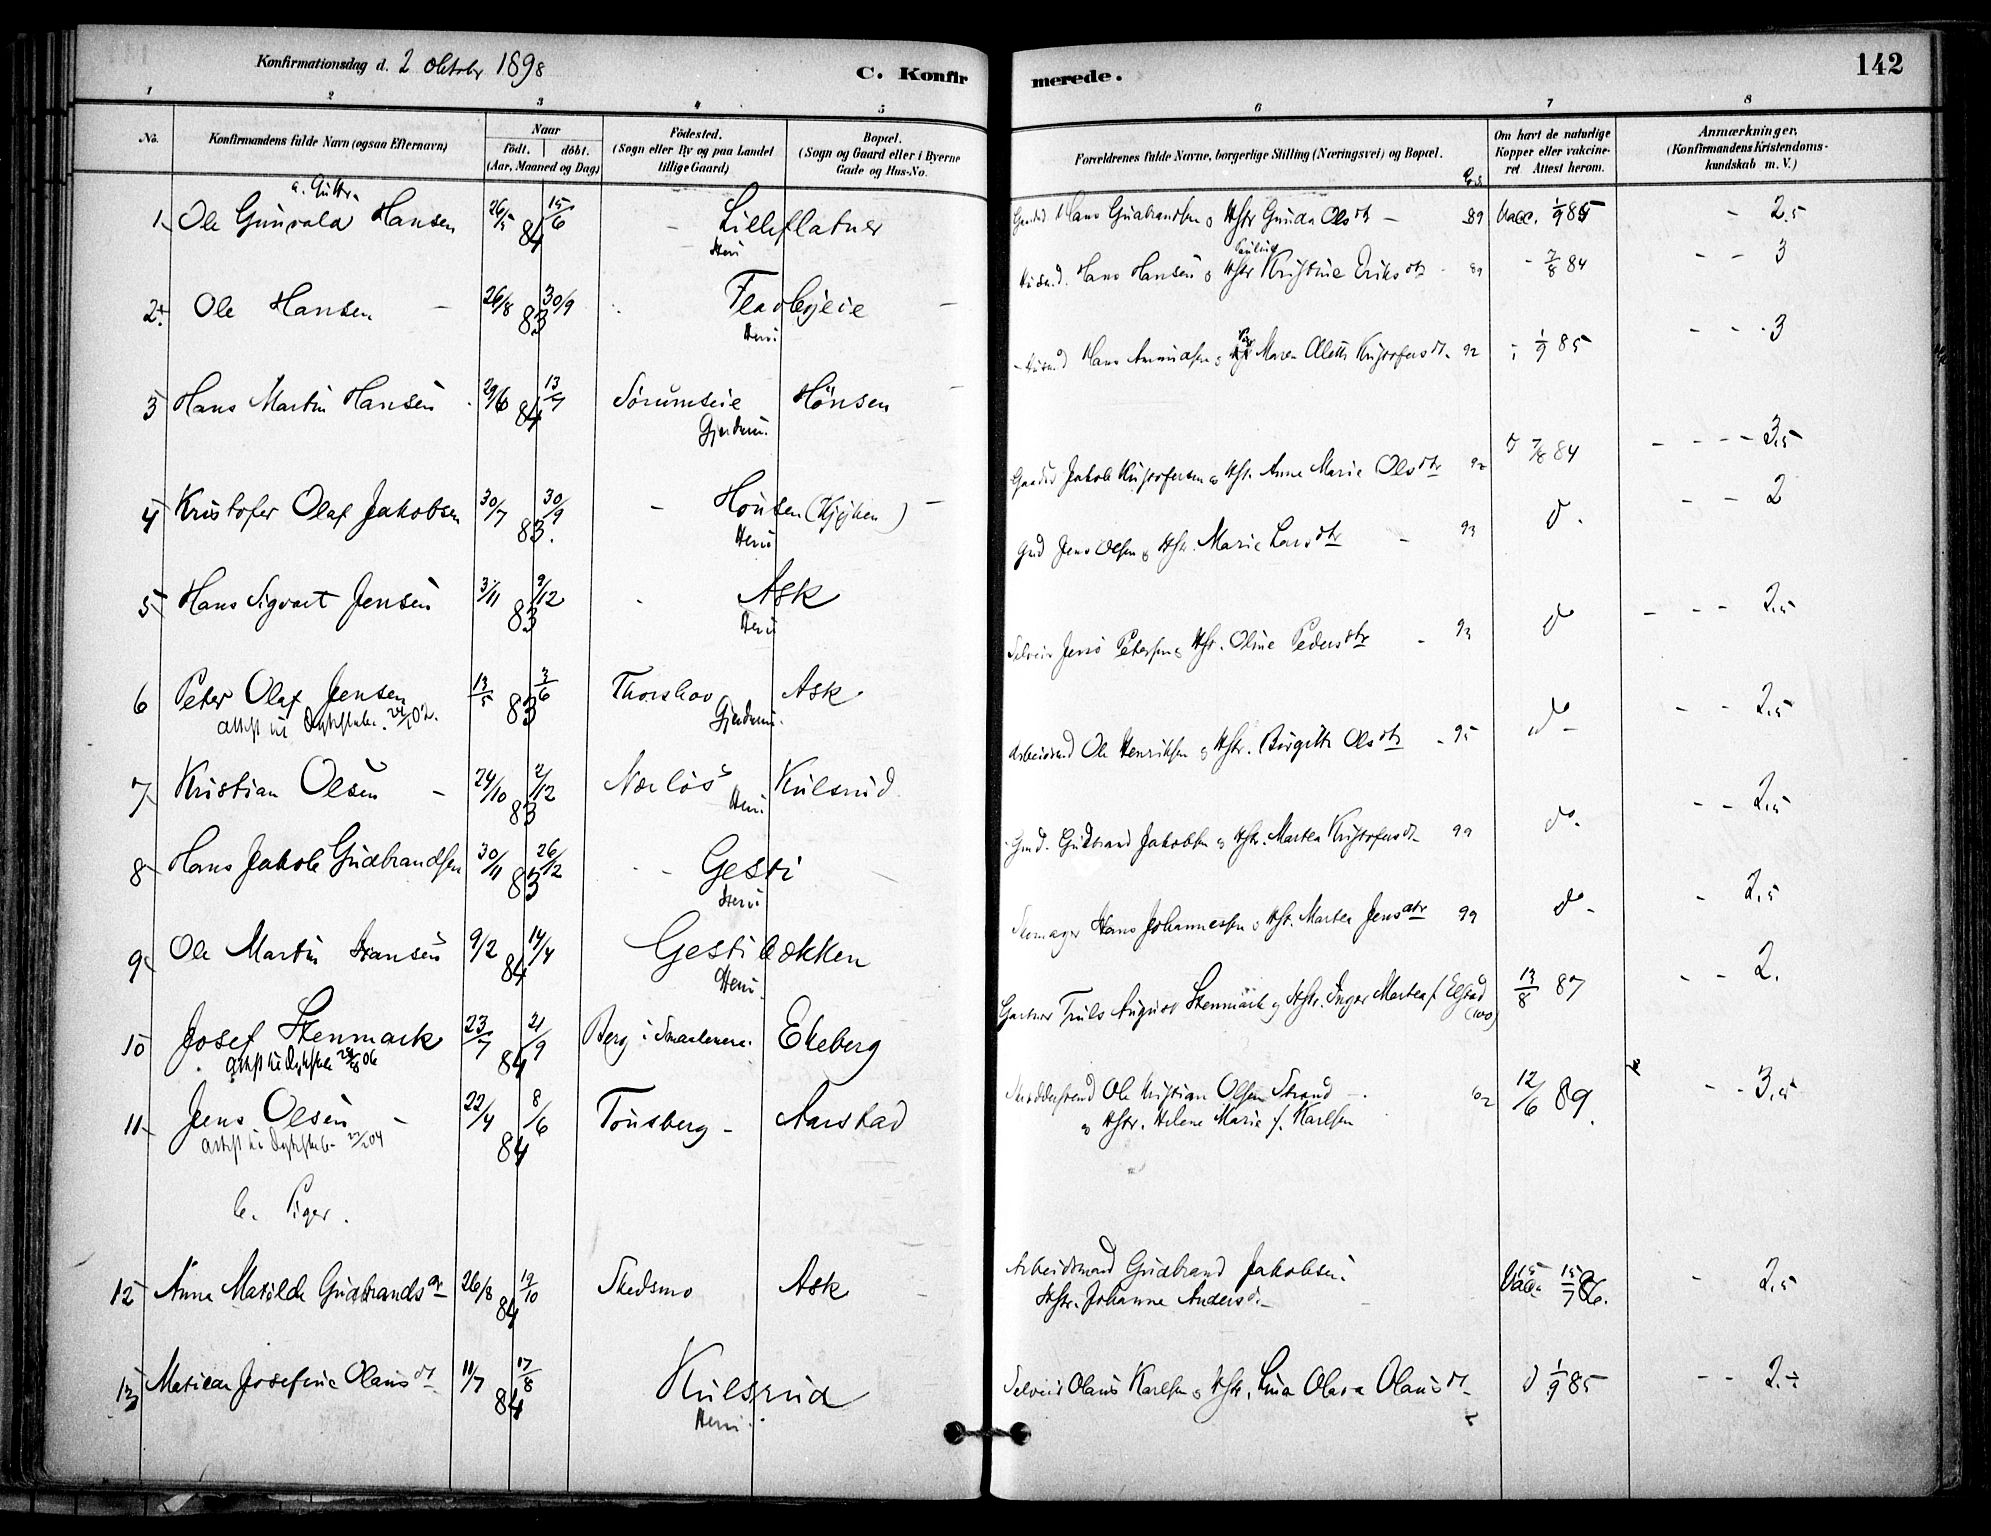 Konfirmationsdag d. 2 Oktober 1898
C. Konfirmerede.
142
1 2 3 4 5 6 7 8
No.
Konfirmandens fulde Navn (ogsaa Efternavn)
Naar
födt. | döbt.
(Aar, Maaned og Dag)
Födested.
(Sogn eller By og paa Landet
tillige Gaard)
Bopæl.
(Sogn og Gaard eller i Byerne
Gade og Hus-No.
Forældrenes fulde Navne, borgerlige Stilling (Næringsvei) og Bopæl.
Om havt de naturlige
Kopper eller vakcine-
ret. Attest herom.
Anmærkninger,
(Konfirmandens Kristendoms-
kundskab m. V.)
a. Gutter
1 Ole Gunvald Hansen 26/5 15/6 84 - Lilleflatner Hans Gudbrandsen og Hstr Gunda Olsdtr - 89 Vacc. 1/9 85 - 2.5
2 Ole Hansen - 26/8 30/9 83 Fladbyeie - Husmd. Hans Hansen og Hstr Pauline Kristine Eriksdtr 89 - 7/8 84 - - 3
3 Hans Martin Hansen 29/6 13/7 84 Sörumseie Gjerdrum. Hönsen - Husmd Hans Amundsen og Maren Olette Kristofersdt. 92 1/9 85 - - - 3
4 Kristofer Olaf Jakobsen 30/7 30/9 83. - Hönsen (Kjöken) - Gaardbr Jakob Kristofersen og Hstr. Anne Marie Olsdtr 92 d 7/8 84 - - - - 3.5
5 Hans Sigvart Jensen 3/11 9/12 83 Ask Gmd Jens Olsen og Hstr. Marie Larsdtr - 93 do. - - 2
6 Peter Olaf Jensen 13/5 3/6 83 Thorshov Gjerdrum. Ask Selveier Jens Petersen og Hstr. Oline Pedersdtr - 93 do - - - 2.5
7 Kristian Olsen - 24/10 2/12 83 Nerlös Kulsrud Arbeidsmd Ole Henriksen og Hstr. Birgitte Olsdtr - 95 do - - - 2.5
8 Hans Jakob Gudbrandsen 30/11 26/12 83 - - Gesti Gmd. Gudbrand Jakobsen og Hstr. Marten Kristofersdt 99 do. - - 2.5
9 Ole Martin Hansen 9/2 14/4 84 Gestibækken Skomager Hans Johannessen og Hstr. Marten Jensdtr 99 do - - 2.5
10 Josef Stenmark 23/7 21/9 84 Berg i Smaalenene. Ekeberg Gartner Truls August Stenmark og Hstr. Inger Marten f. Elstad (100) 13/8 87 - - 2.
11 Jens Olsen - 22/4 8/6 84 Tönsberg - Aarstad Ole Kristian Olsen Strand - 102 12/6 89. - - 3.5
og Hstr. Helene Marie f. Karlsen
b. Piger.
12 Anna Matilde Gudbrandsdr 26/8 19/10 84 Skedsmo Ask - Arbeidsmand Gudbrand Jakobsen. Vacc. 15/7 86. - 2.5
Hstr. Johanne Andersd. -
13 Matilde Josefine Olausdt 11/7 17/8 84 Kulsrud Selveier Olaus Karlsen og Hstr. Lina Olava Olausdt d 1/9 85 - - 2.